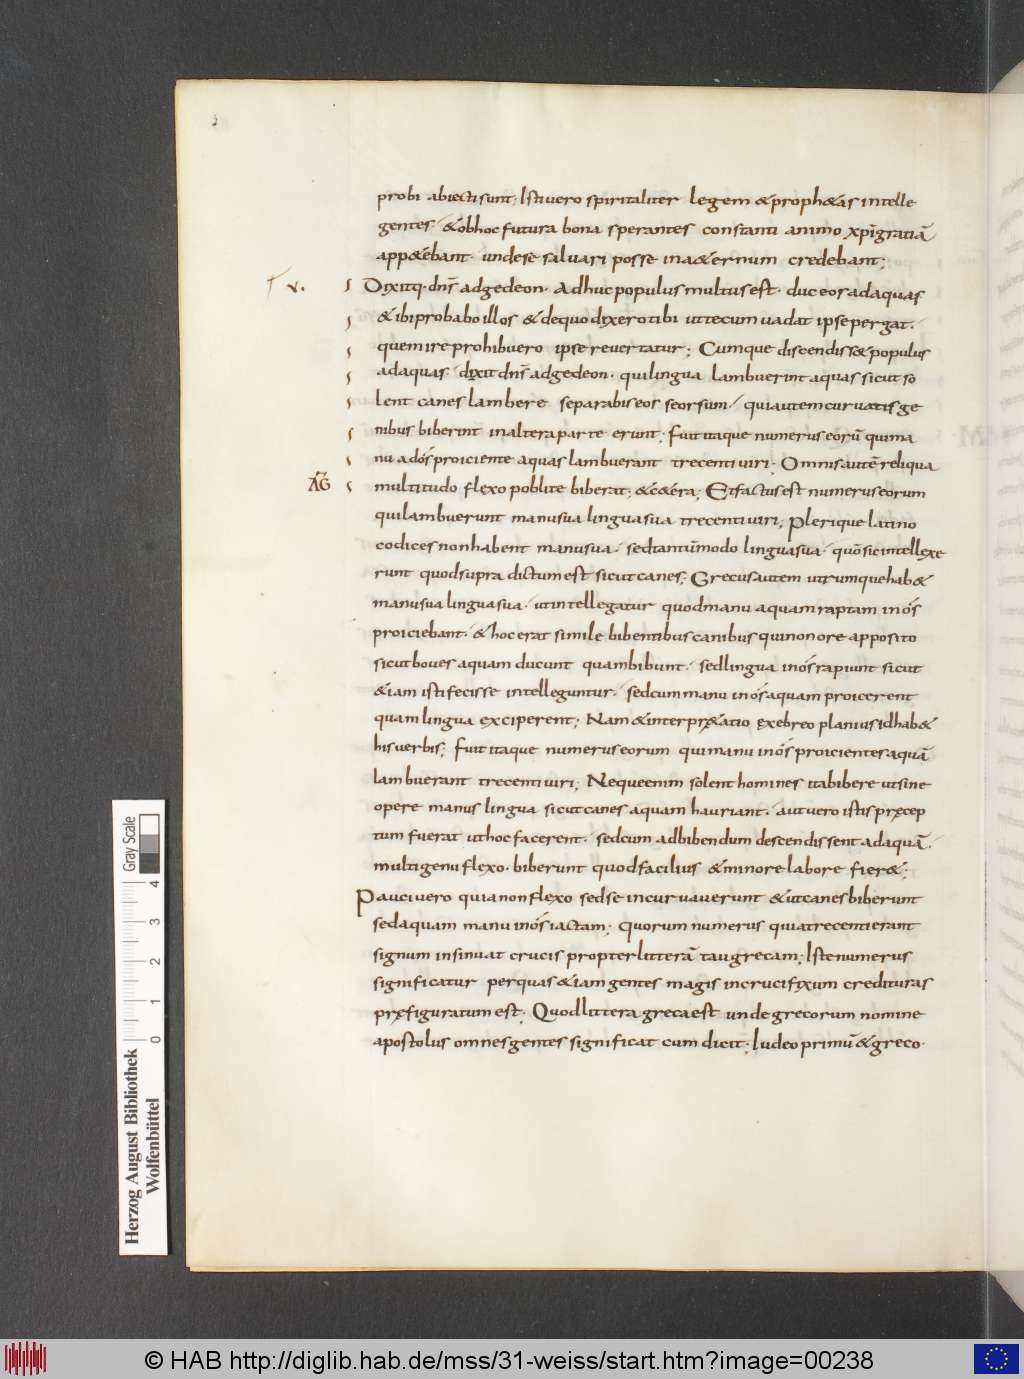 probi abiecti sunt; Isti uero spiritaliter legem & proph&as intelle
gentes· & ob hoc futura bona sperantes constanti animo xp̄i gratiā
app&ebant· unde se saluari posse in a&ernum credebant;
v. Dixitq· dn̄s ad gedeon· Adhuc populus multus est· duc eos ad aquas
& ibi probabo illos & de quo dixero tibi ut tecum uadat ipse pergat·
quem ire prohibuero ipse reuertatur; Cumque discendiss& populus
ad aquas· dixit dn̄s ad gedeon· qui lingua lambuerint aquas sicut so
lent canes lambere separabis eos seorsum· qui autem curuatis ge
nibus biberint in altera parte erunt; fuit itaque numerus eorū qui ma
nu ad os proiciente aquas lambuerant trecenti uiri; Omnis autē reliqua
AḠ multitudo flexo poblite biberat; & c&era; Et factus est numerus eorum
qui lambuerunt manu sua lingua sua trecenti uiri; Plerique latino
codices non habent manu sua· sed tantūmodo lingua sua· quō sic intellexe
runt quod supra dictum est sicut canes; Grecus autem utrumque hab&
manu sua lingua sua· ut intellegatur quod manu aquam raptam in os
proiciebant· & hoc erat simile bibentibus canibus qui non ore apposito
sicut boues aquam ducunt quam bibunt· sed lingua in os rapiunt sicut
&iam isti fecisse intelleguntur· sed cum manu in os aquam proicerent
quam lingua exciperent; Nam & interpr&atio ex ebreo planius id hab&
his uerbis; fuit itaque numerus eorum qui manu in os proicientes aquā
lambuerant trecenti uiri; Neque enim solent homines ita bibere ut sine
opere manus lingua sicut canes aquam hauriant· aut uero istis pręcep
tum fuerat ut hoc facerent· sed cum ad bibendum descendissent ad aquā·
multi genu flexo· biberunt quod facilius & minore labore fier&;
Pauci uero quia non flexo sed se incuruauerunt & ut canes biberunt
sed aquam manu in os iactam; quorum numerus quia trecenti erant
signum insinuat crucis propter litterā tau grecam; Iste numerus
significatur per quas &iam gentes magis in crucifixum credituras
pręfiguratum est; Quod littera greca est unde grecorum nomine
apostolus omnes gentes significat cum dicit; Iudeo primū & greco·
Herzog August Bibliothek
Wolfenbüttel
0 1 2 3 4
Gray Scale
© HAB http://diglib.hab.de/mss/31-weiss/start.htm?image=00238